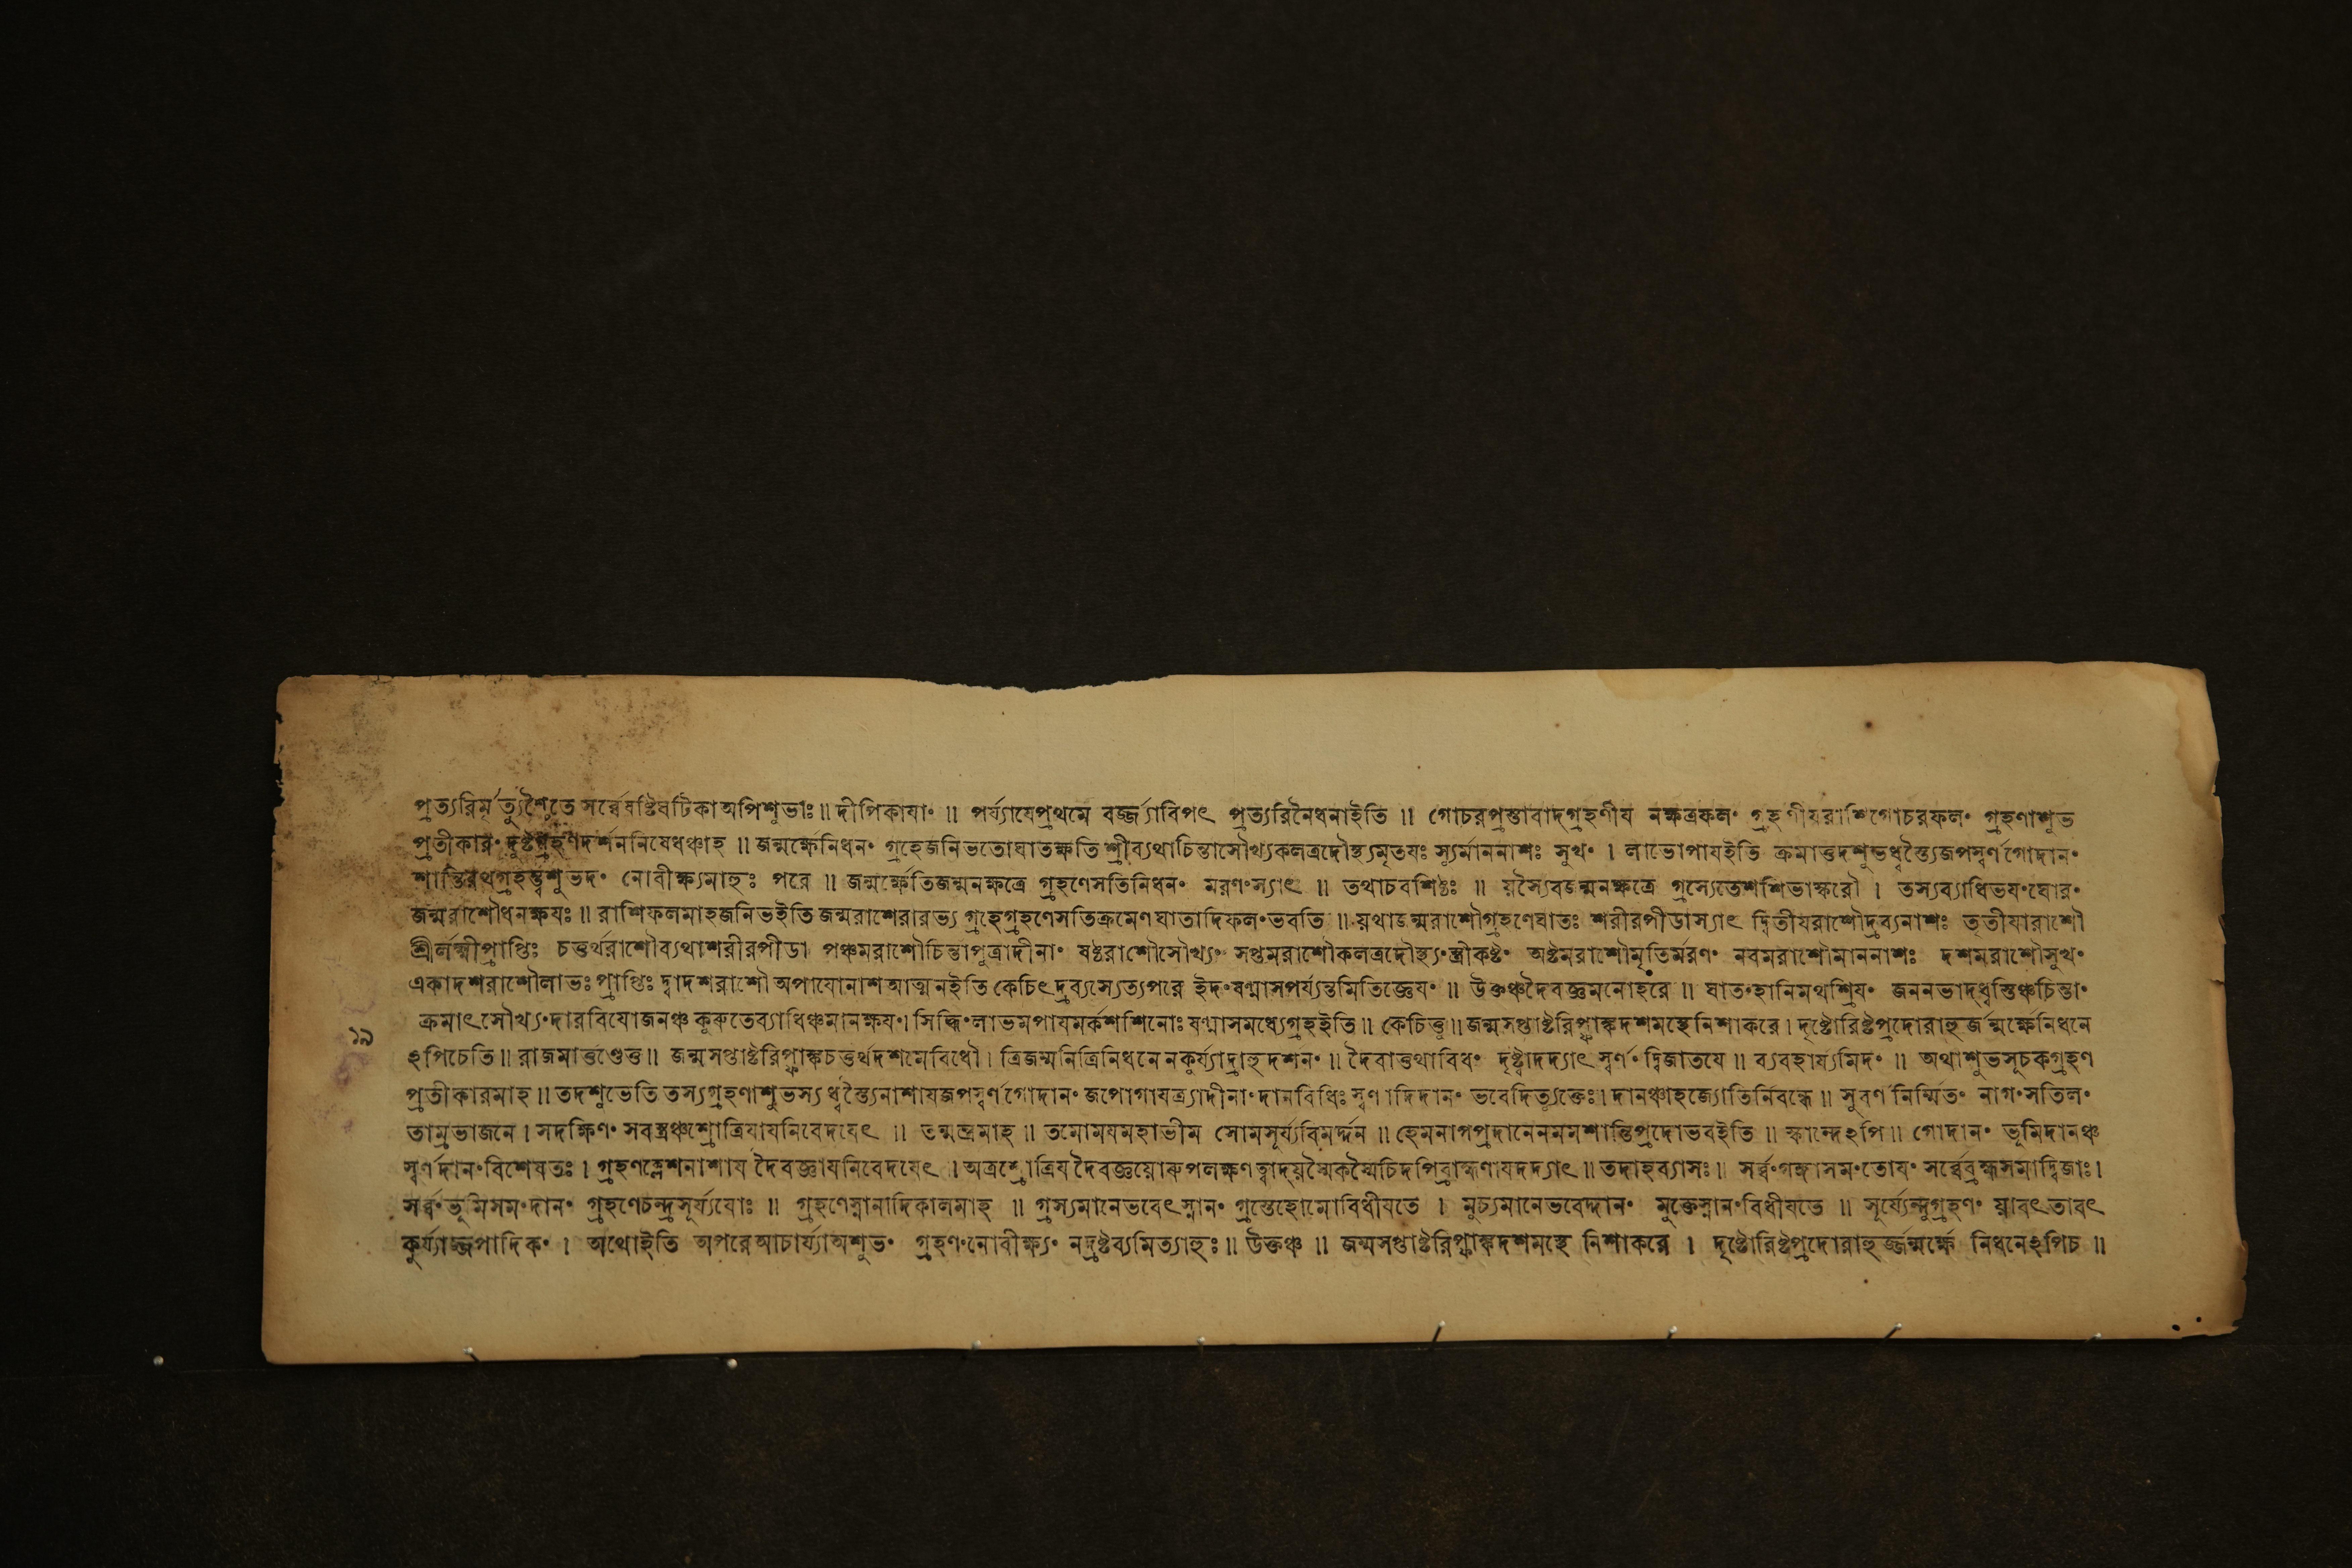 প্রত্যরিমৃত্যুশ্চৈতে সর্ব্বেষষ্টিঘটিকা অপিশুভাঃ ॥ দীপিকাযাং ॥ পর্য্যাযেপ্রথমে বর্জ্জ্যাবিপৎ প্রত্যরিনৈধনাইতি ॥ গোচরপ্রস্তাবাদগ্রহণীয নক্ষত্রফলং গ্রহণীযরাশিগোচরফলং গ্রহণাশুভ
প্রতীকারং দুষ্টগ্রহণদর্শননিষেধঞ্চাহ ॥ জন্মর্ক্ষেনিধনং গ্রহেজনিভতোঘাতঃক্ষতি শ্রীব্যথাচিন্তাসৌখ্যকলত্রদৌস্থ্যমৃতযঃ স্যুর্মাননাশঃ সুখং । লাভোপাযইতি ক্রমাত্তদশুভধ্বস্ত্যৈজপস্বর্ণগোদানং
শান্তিরথগ্রহস্ত্বশুভদং নোবীক্ষ্যমাহুঃ পরে ॥ জন্মর্ক্ষেতিজন্মনক্ষত্রে গ্রহণেসতিনিধনং মরণংস্যাৎ ॥ তথাচবশিষ্ঠঃ ॥ যস্যৈবজন্মনক্ষত্রে গ্রস্যেতেশশিভাস্করৌ । তস্যব্যাধিভযংঘোরং
জন্মরাশৌধনক্ষযঃ ॥ রাশিফলমাহজনিভইতি জন্মরাশেরারভ্য গ্রহেগ্রহণেসতিক্রমেণ ঘাতাদিফলংভবতি ॥ যথাজন্মরাশৌগ্রহণেঘাতঃ শরীরপীডাস্যাৎ দ্বিতীযরাশৌদ্রব্যনাশঃ তৃতীযারাশৌ
শ্রীর্লক্ষ্মীপ্রাপ্তিঃ চতুর্থরাশৌব্যথাশরীরপীডা পঞ্চমরাশৌচিন্তাপুত্রাদীনাং ষষ্ঠরাশৌসৌখ্যং সপ্তমরাশৌকলত্রদৌস্থ্যংস্ত্রীকষ্টং অষ্টমরাশৌমৃতির্মরণং নবমরাশৌমাননাশঃ দশমরাশৌসুখং
একাদশরাশৌলাভঃ প্রাপ্তিঃ দ্বাদশরাশৌ অপাযোনাশ আত্মনইতি কেচিৎ দ্রব্যস্যেত্যপরে ইদংষণ্মাসপর্য্যন্তমিতিজ্ঞেযং ॥ উক্তঞ্চদৈবজ্ঞমনোহরে ॥ ঘাতংহানিমথশ্রিযং জননভাদ্ধ্বস্তিঞ্চচিন্তাং
ক্রমাৎসৌখ্যংদারবিযোজনঞ্চ কুরুতেব্যাধিঞ্চমানক্ষযং । সিদ্ধিংলাভমপাযমর্কশশিনোঃ ষণ্মাসমধ্যেগ্রহইতি ॥ কেচিত্তু ॥ জন্মসপ্তাষ্টরিপ্ফাঙ্কদশমস্থেনিশাকরে । দৃষ্টোরিষ্টপ্রদোরাহুর্জন্মর্ক্ষেনিধনে
ঽপিচেতি ॥ রাজমার্ত্তণ্ডেতু ॥ জন্মসপ্তাষ্টরিপ্ফাঙ্কচতুর্থদশমেবিধৌ । ত্রিজন্মনিত্রিনিধনে নকুর্য্যাদ্রাহুদর্শনং ॥ দৈবাত্তথাবিধং দৃষ্ট্বাদদ্যাৎ স্বর্ণং দ্বিজাতযে ॥ ব্যবহার্য্যমিদং ॥ অথাশুভসূচকগ্রহণ
প্রতীকারমাহ ॥ তদশুভেতি তস্যগ্রহণাশুভস্য ধ্বস্ত্যৈনাশাযজপস্বর্ণগোদানং জপোগাযত্র্যাদীনাং দানবিধিঃ স্বর্ণাদিদানং ভবেদিত্যুক্তেঃ । দানঞ্চাহজ্যোতির্নিবন্ধে ॥ সুবর্ণনির্ম্মিতং নাগংসতিলং
তাম্রভাজনে । সদক্ষিণং সবস্ত্রঞ্চশ্রোত্রিযাযনিবেদযেৎ ॥ তন্মন্ত্রমাহ ॥ তমোমযমহাভীম সোমসূর্য্যবিমর্দ্দন ॥ হেমনাগপ্রদানেনমমশান্তিপ্রদোভবইতি ॥ স্কান্দেঽপি ॥ গোদানং ভূমিদানঞ্চ
স্বর্ণদানংবিশেষতঃ । গ্রহণক্লেশনাশায দৈবজ্ঞাযনিবেদযেৎ । অত্রশ্রোত্রিয দৈবজ্ঞয়োরুপলক্ষণত্বাদ্যস্মৈকস্মৈচিদপিব্রাহ্মণাযদদ্যাৎ ॥ তদাহব্যাসঃ ॥ সর্ব্বংগঙ্গাসমংতোযং সর্ব্বেব্রহ্মসমাদ্বিজাঃ ।
সর্ব্বংভূমিসমংদানং গ্রহণেচন্দ্রসূর্য্যযোঃ ॥ গ্রহণেস্নানাদিকালমাহ ॥ গ্রস্যমানেভবেৎস্নানং গ্রস্তেহোমোবিধীযতে । মুচ্যমানেভবেদ্দানং মুক্তেস্নানংবিধীযতে ॥ সূর্য্যেন্দুগ্রহণং যাবৎতাবৎ
১৯
কুর্য্যাজ্জপাদিকং । অথোইতি অপরেআচার্য্যাঅশুভং গ্রহণংনোবীক্ষ্যং নদ্রষ্টব্যমিত্যাহুঃ ॥ উক্তঞ্চ ॥ জন্মসপ্তাষ্টরিপ্ফাঙ্কদশমস্থে নিশাকরে । দৃষ্টোরিষ্টপ্রদোরাহুর্জ্জন্মর্ক্ষে নিধনেঽপিচ ॥